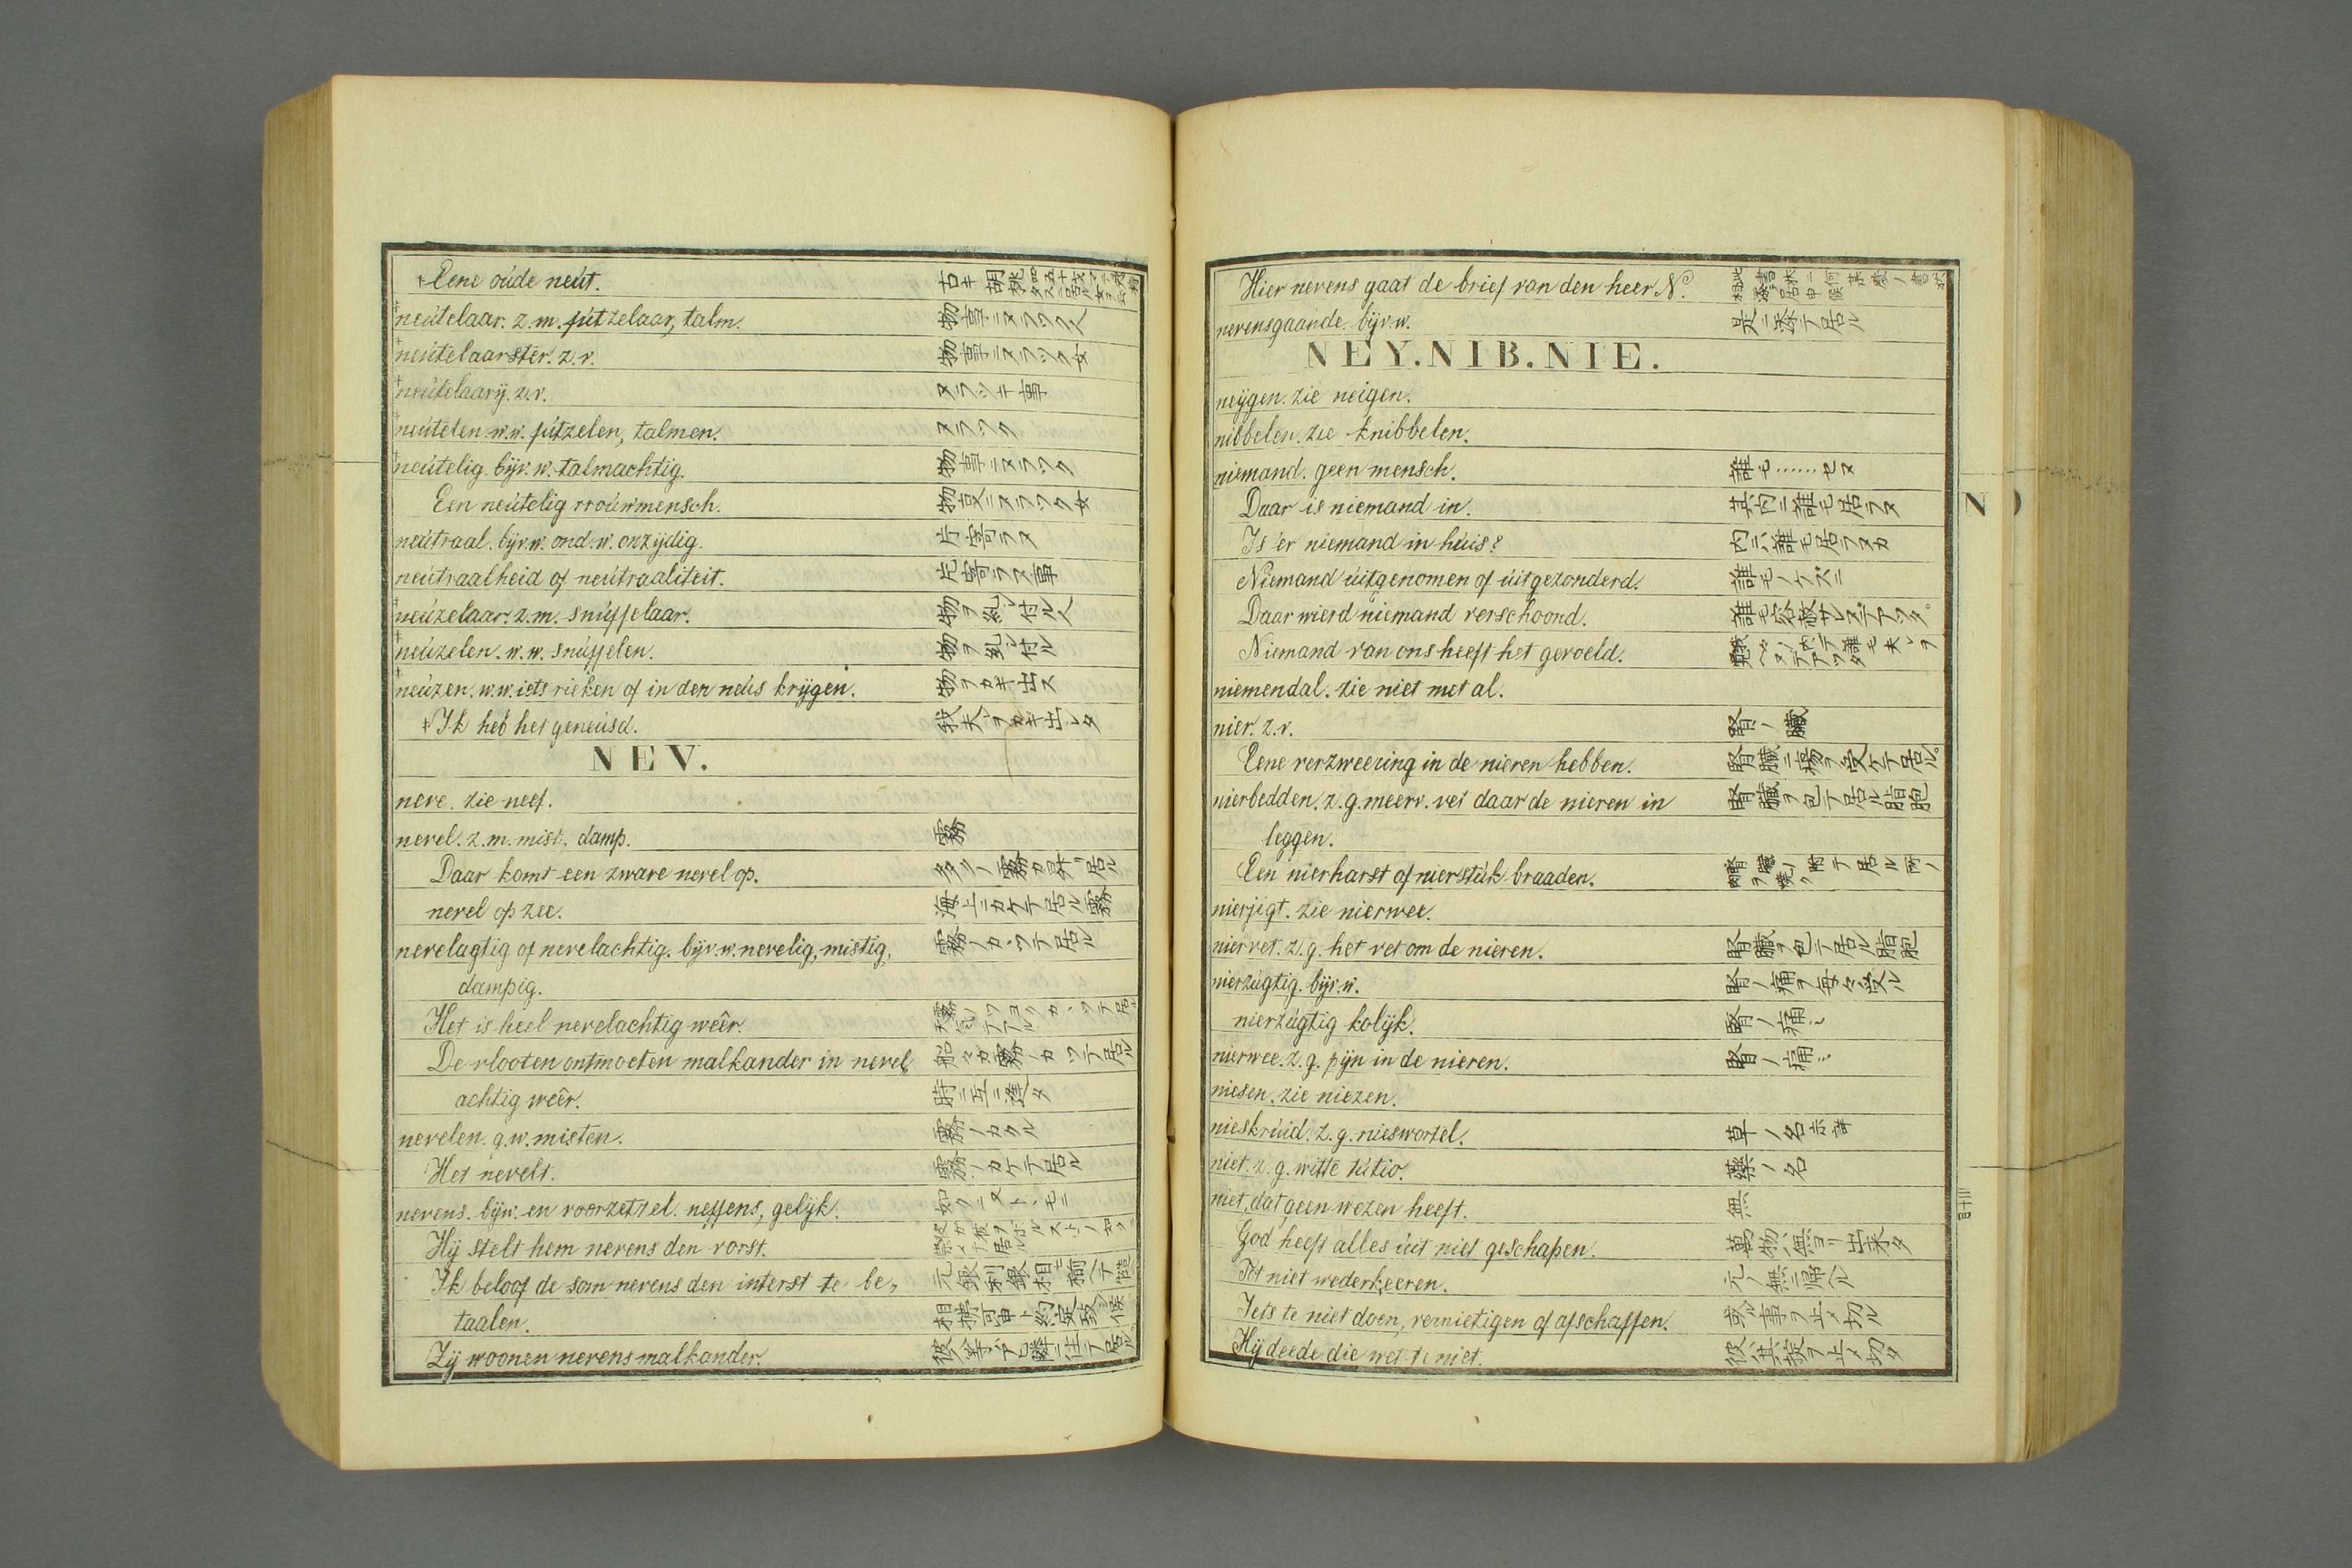 Eene oúde neút.
neútelaar. z.m. fútzelaar, talm. 物事ニヌラツク人
neútelaarster. z.v. 物事ニヌラツク女
neútelaarÿ. z.v. ヌラツキ事
neútelen. w.w. fútzelen, talmen. ヌラツク
neútelig. bÿv.w. talmachtig. 物事ニヌラツク
Een neútelig vroúwmensch. 物夏ニヌラツク女
neútraal. bÿv.w. ond.w. onzÿdig. 片寄ラヌ
neútraalheid of neútraaliteit. 片寄ラヌ事
neúzelaar. z.m. snúffelaar. 物ヲ糺シ付ル人
neúzelen. w.w. snúffelen. 物ヲ糺シ付ル
neúzen. w.w. iets rieken of in den neús krÿgen. 物ヲカギ出ス
Ik heb het geneúsd. 我夫ヲカギ出シタ
NEV.
neve. zie neef.
nevel. z.m. mist, damp. 霧
Daar komt een zware nevel op. 多クノ霧カ昇リ居ル
nevel op zee. 海上ニカケテ居ル霧
nevelagtig of nevelachtig. bÿv.w. nevelig, mistig, 霧ノカヽツテ居ル
dampig.
Het is heel nevelachtig weêr.
De vlooten ontmoeten malkander in nevel, 船々カ霧ノカヽツテ居ル
achtig weêr. 時ニ互ニ逢タ
nevelen. g.w. misten. 霧ノカヽル
Het nevelt. 霧ノカケテ居ル
nevens. bÿw. en voorzetzel. neffens, gelÿk. 如クニ
Hÿ stelt hem nevens den vorst.
Ik beloof de som nevens den interst te be, 元銀利銀相揃ヘテ
taalen. 相拂可申ト約定致シ候
Zÿ woonen nevens malkander. 彼等ハ隣ニ住テ居ル
Hier nevens gaat de brief van den heer N.
nevensgaande. bÿv.w. 是ニ添テ居ル
NEY. NIB. NIE.
neÿgen. zie neigen.
nibbelen. zie knibbelen.
niemand. geen mensch. 誰モ……セヌ
Daar is niemand in. 其内ニ誰モ居ラヌ
Is 'er niemand in húis? 内ニハ誰モ居ラヌカ
Niemand úitgenomen of úitgezonderd. 誰モノケズニ
Daar wierd niemand verschoond. 誰モ容赦サレズテアツタ。
Niemand van ons heeft het gevoeld.
niemendal. zie niet met al.
nier. z.v. 腎ノ臓
Eene verzweering in de nieren hebben. 腎臓ニ瘍ヲ受ケテ居ル。
nierbedden. z.g. meerv. vet daar de nieren in 腎臓ヲ包テ居ル脂胞
leggen.
Een nierharst of nierstúk braaden.
nierjigt. zie nierwee.
niervet. z.g. het vet om de nieren. 腎臓ヲ包テ居ル脂胞
nierzúgtig. bÿv.w. 腎ノ痛ヲ毎々受ル
nierzúgtig kolÿk. 腎ノ痛ミ
nierwee. z.g. pÿn in de nieren. 腎ノ痛ミ
niesen. zie niezen.
nieskrúid. z.g. nieswortel. 草ノ名
niet. z.g. witte tútio. 藥ノ名
niet, dat geen wezen heeft. 無
God heeft alles úit niet geschapen. 萬物ハ無ヨリ出来タ
Tot niet wederkeeren. 元ノ無ニ帰ヘル
Iets te niet doen, vernietigen of afschaffen. 或ル事ヲ止メ切ル
Hÿ deede die wet te niet. 彼ハ其掟ヲ止メ切タ
N